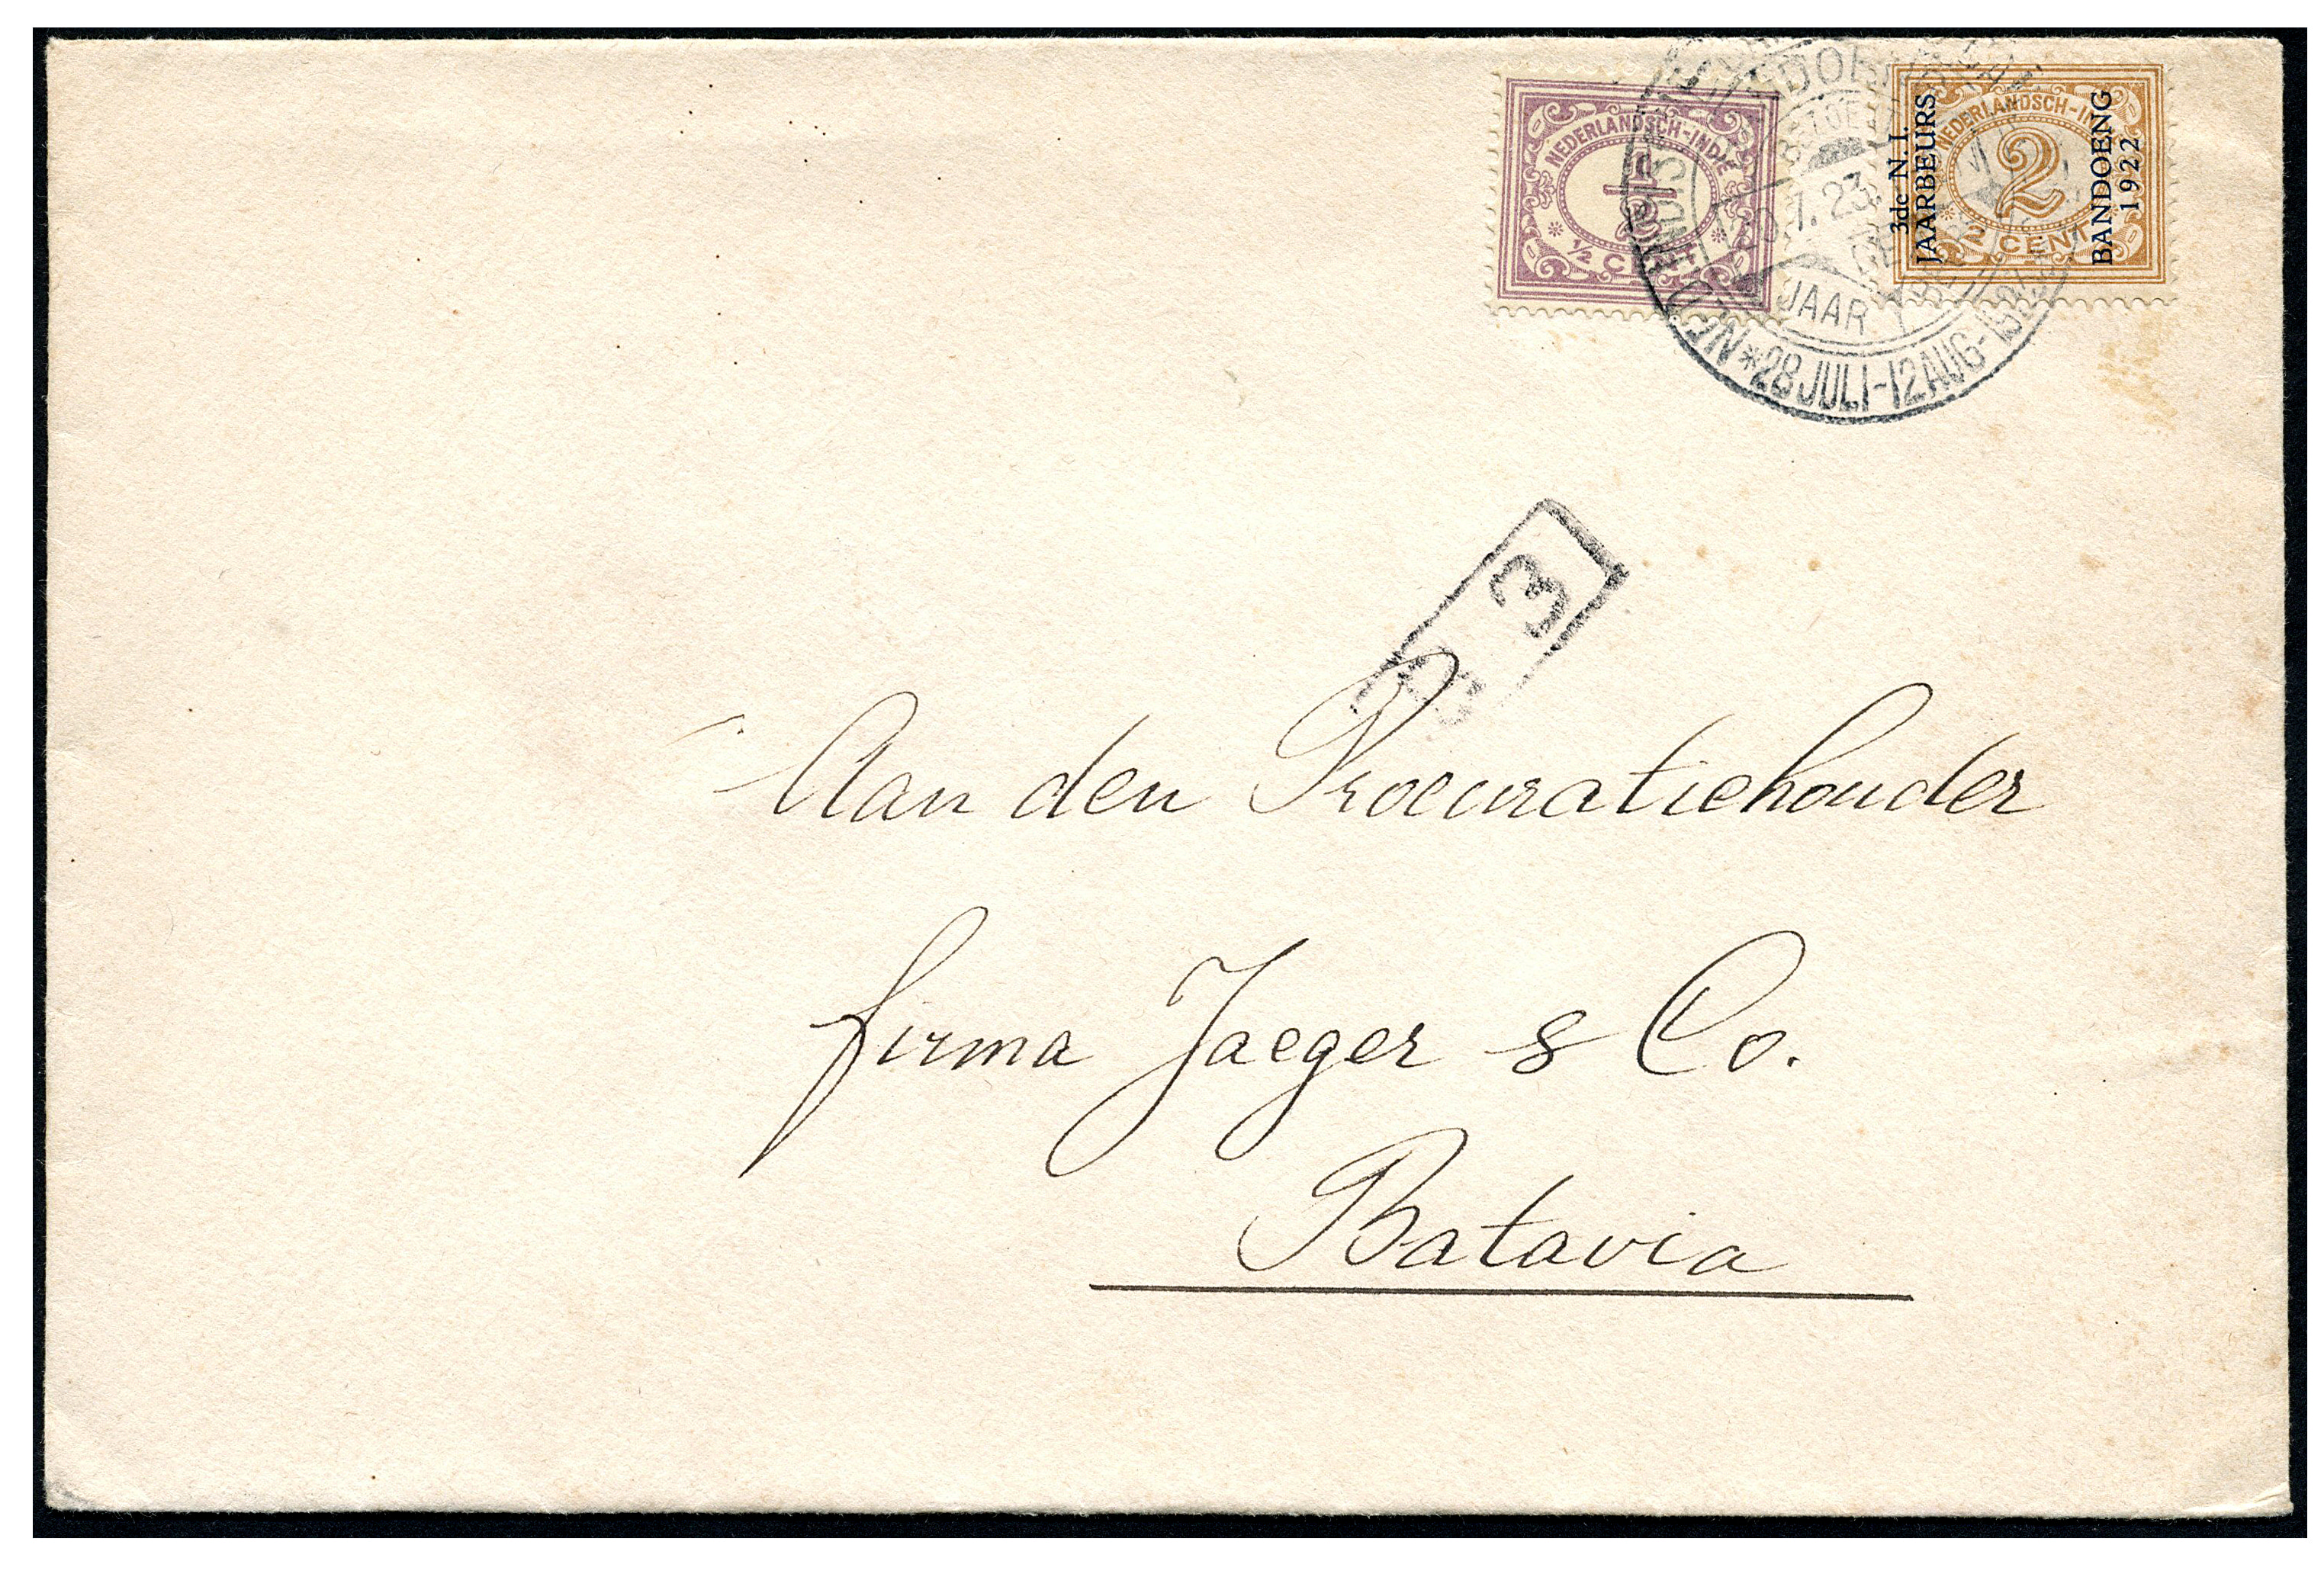 NEDERLANDSCH-INDIË
½
½ CENT
NEDERLANDSCH-INDIË
2
2 CENT
3de N. I.
JAARBEURS
BANDOENG
1922
7.23
JAAR
*28 JULI-12 AUG-
3
Aan den Procuratiehouder
firma Jaeger & Co.
Batavia